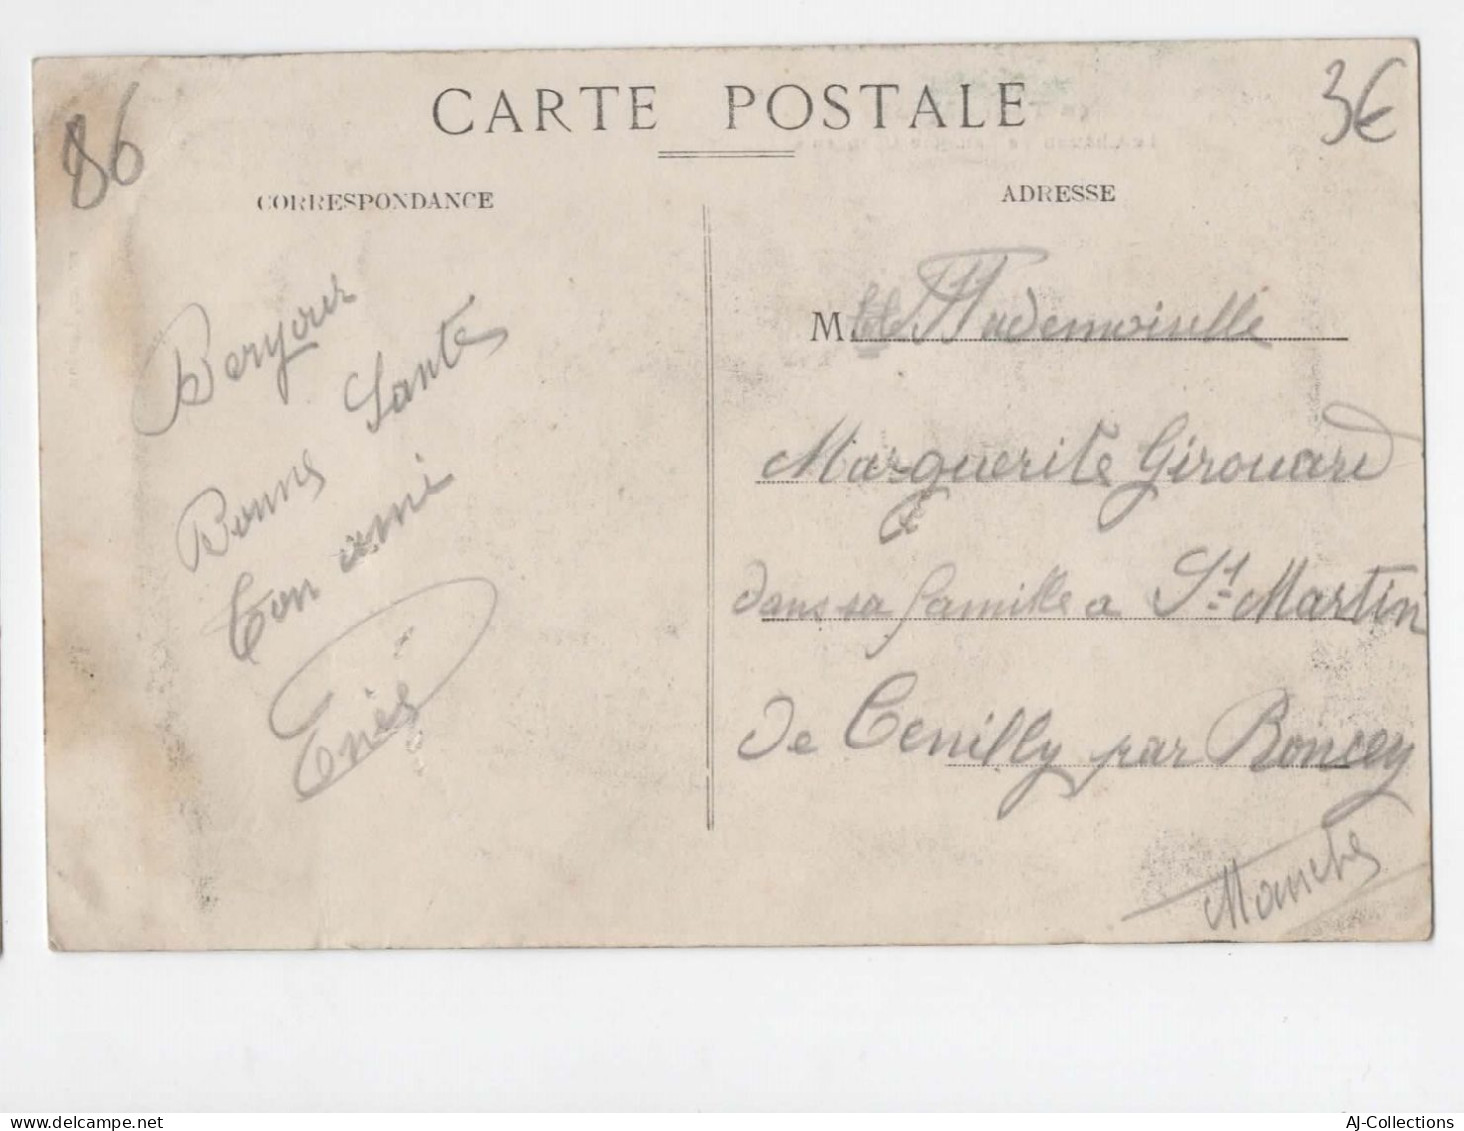 86
CARTE POSTALE
3€
CORRESPONDANCE
Bonjour
Bonne Santé
Ton ami
ADRESSE
Mlle Mademoiselle
Marguerite Girouard
dans sa famille a St Martin
de Cenilly par Roncey
Manche
AJ-Collections